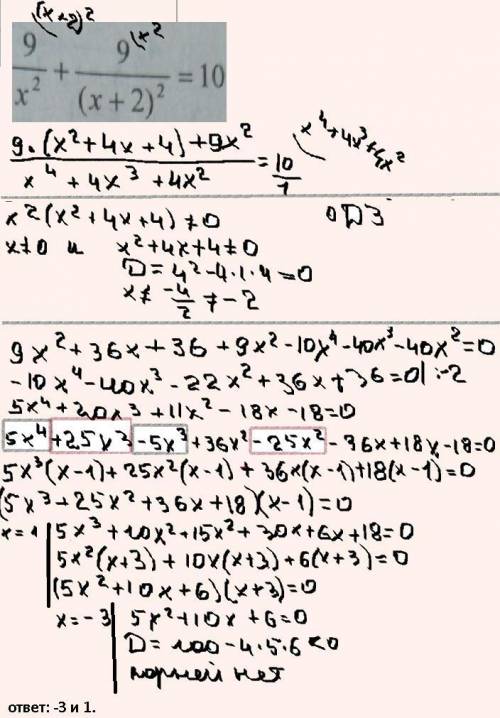 (x+2)² (x²
9/x² + 9/(x+2)² = 10
(9·(x²+4x+4)+9x²)/(x⁴+4x³+4x²) = 10/1 x⁴+4x³+4x²
x²(x²+4x+4)≠0 ОДЗ
x≠0 и x²+4x+4≠0
D=4²-4·1·4=0
x≠ -4/2 ≠ -2
9x²+36x+36+9x²-10x⁴-40x³-40x²=0
-10x⁴-40x³-22x²+36x+36=0|:-2
5x⁴+20x³+11x²-18x-18=0
5x⁴+25x³-5x³+36x²-25x²-36x+18x-18=0
5x³(x-1)+25x²(x-1)+36x(x-1)+18(x-1)=0
(5x³+25x²+36x+18)(x-1)=0
x=1 | 5x³+10x²+15x²+30x+6x+18=0
5x²(x+3)+10x(x+3)+6(x+3)=0
(5x²+10x+6)(x+3)=0
x=-3 | 5x²+10x+6=0
D=100-4·5·6<0
корней нет
ответ: -3 и 1.